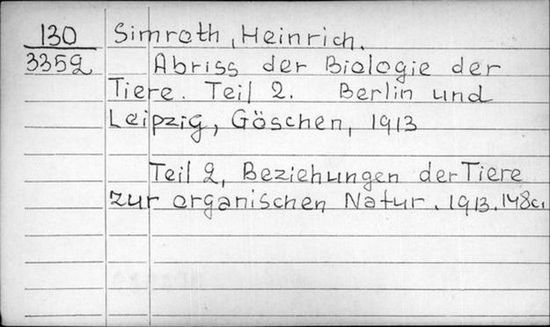 130
3352
Simroth, Heinrich.
Abriss der Biologie der
Tiere. Teil 2. Berlin und
Leipzig, Göschen, 1913
Teil 2, Beziehungen der Tiere
zur organischen Natur. 1913. 148c.